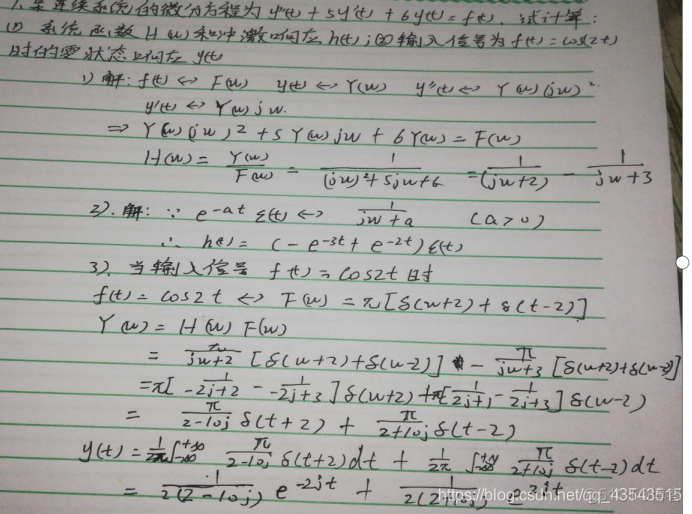 某连续系统的微分方程为 y''(t) + 5y'(t) + 6y(t) = f(t), 试计算:
(1) 系统函数 H(w) 和冲激响应 h(t); (2) 输入信号为 f(t) = cos(2t)
时的零状态响应 y(t)
1) 解: f(t) ↔ F(w) y(t) ↔ Y(w) y''(t) ↔ Y(w)(jw)²
y'(t) ↔ Y(w)jw.
⇒ Y(w)(jw)² + 5Y(w)jw + 6Y(w) = F(w)
H(w) = Y(w)/F(w) = 1/((jw)²+5jw+6) = 1/(jw+2) - 1/(jw+3)
2). 解: ∵ e^{-at} ε(t) ↔ 1/(jw+a) (a>0)
∴ h(t) = (-e^{-3t} + e^{-2t}) ε(t)
3), 当输入信号 f(t) = cos2t 时
f(t) = cos2t ↔ F(w) = π[δ(w+2) + δ(t-2)]
Y(w) = H(w) F(w)
= π/(jw+2) [δ(w+2)+δ(w-2)] - π/(jw+3) [δ(w+2)+δ(w-2)]
= π[1/(-2j+2) - 1/(-2j+3)] δ(w+2) + π[1/(2j+) - 1/(2j+3)] δ(w-2)
= π/(2-10j) δ(t+2) + π/(2+10j) δ(t-2)
y(t) = 1/2π ∫_{-∞}^{+∞} π/(2-10j) δ(t+2)dt + 1/2π ∫_{-∞}^{+∞} π/(2+10j) δ(t-2)dt
= 1/(2(2-10j)) e^{-2jt} + 1/(2(2+10j)) e^{2jt}
https://blog.csdn.net/qq_43543515